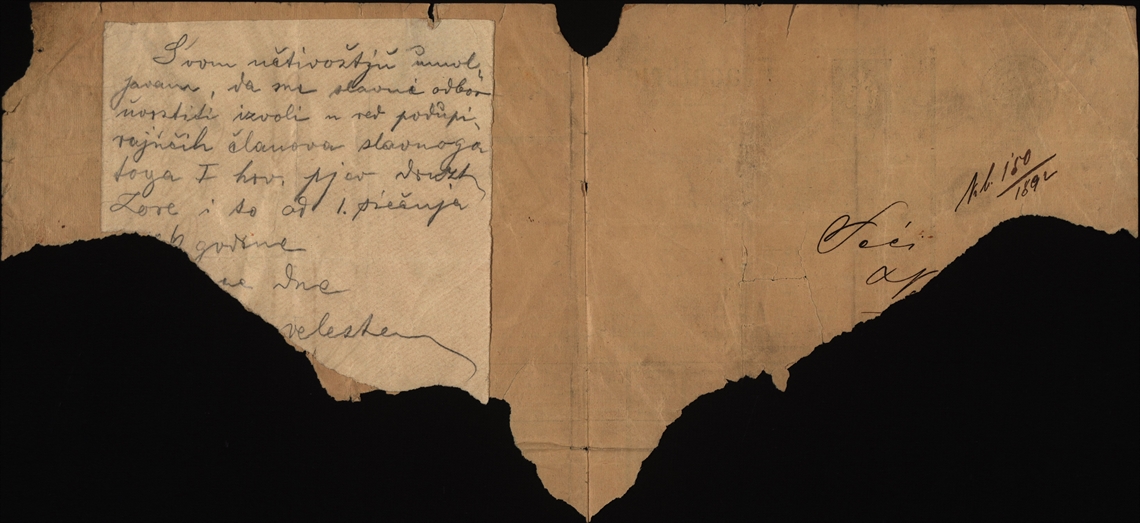 S'vom učtivoštjŭ umol-
javam, da me slavni odbor
ŭvrstiti izvoli u red podŭpi-
rajŭćih članova slavnoga
toga I hrv. pjev družt
Zore i to od 1. siečnja
godine
ne dne
velešten
N.b. 150/1892